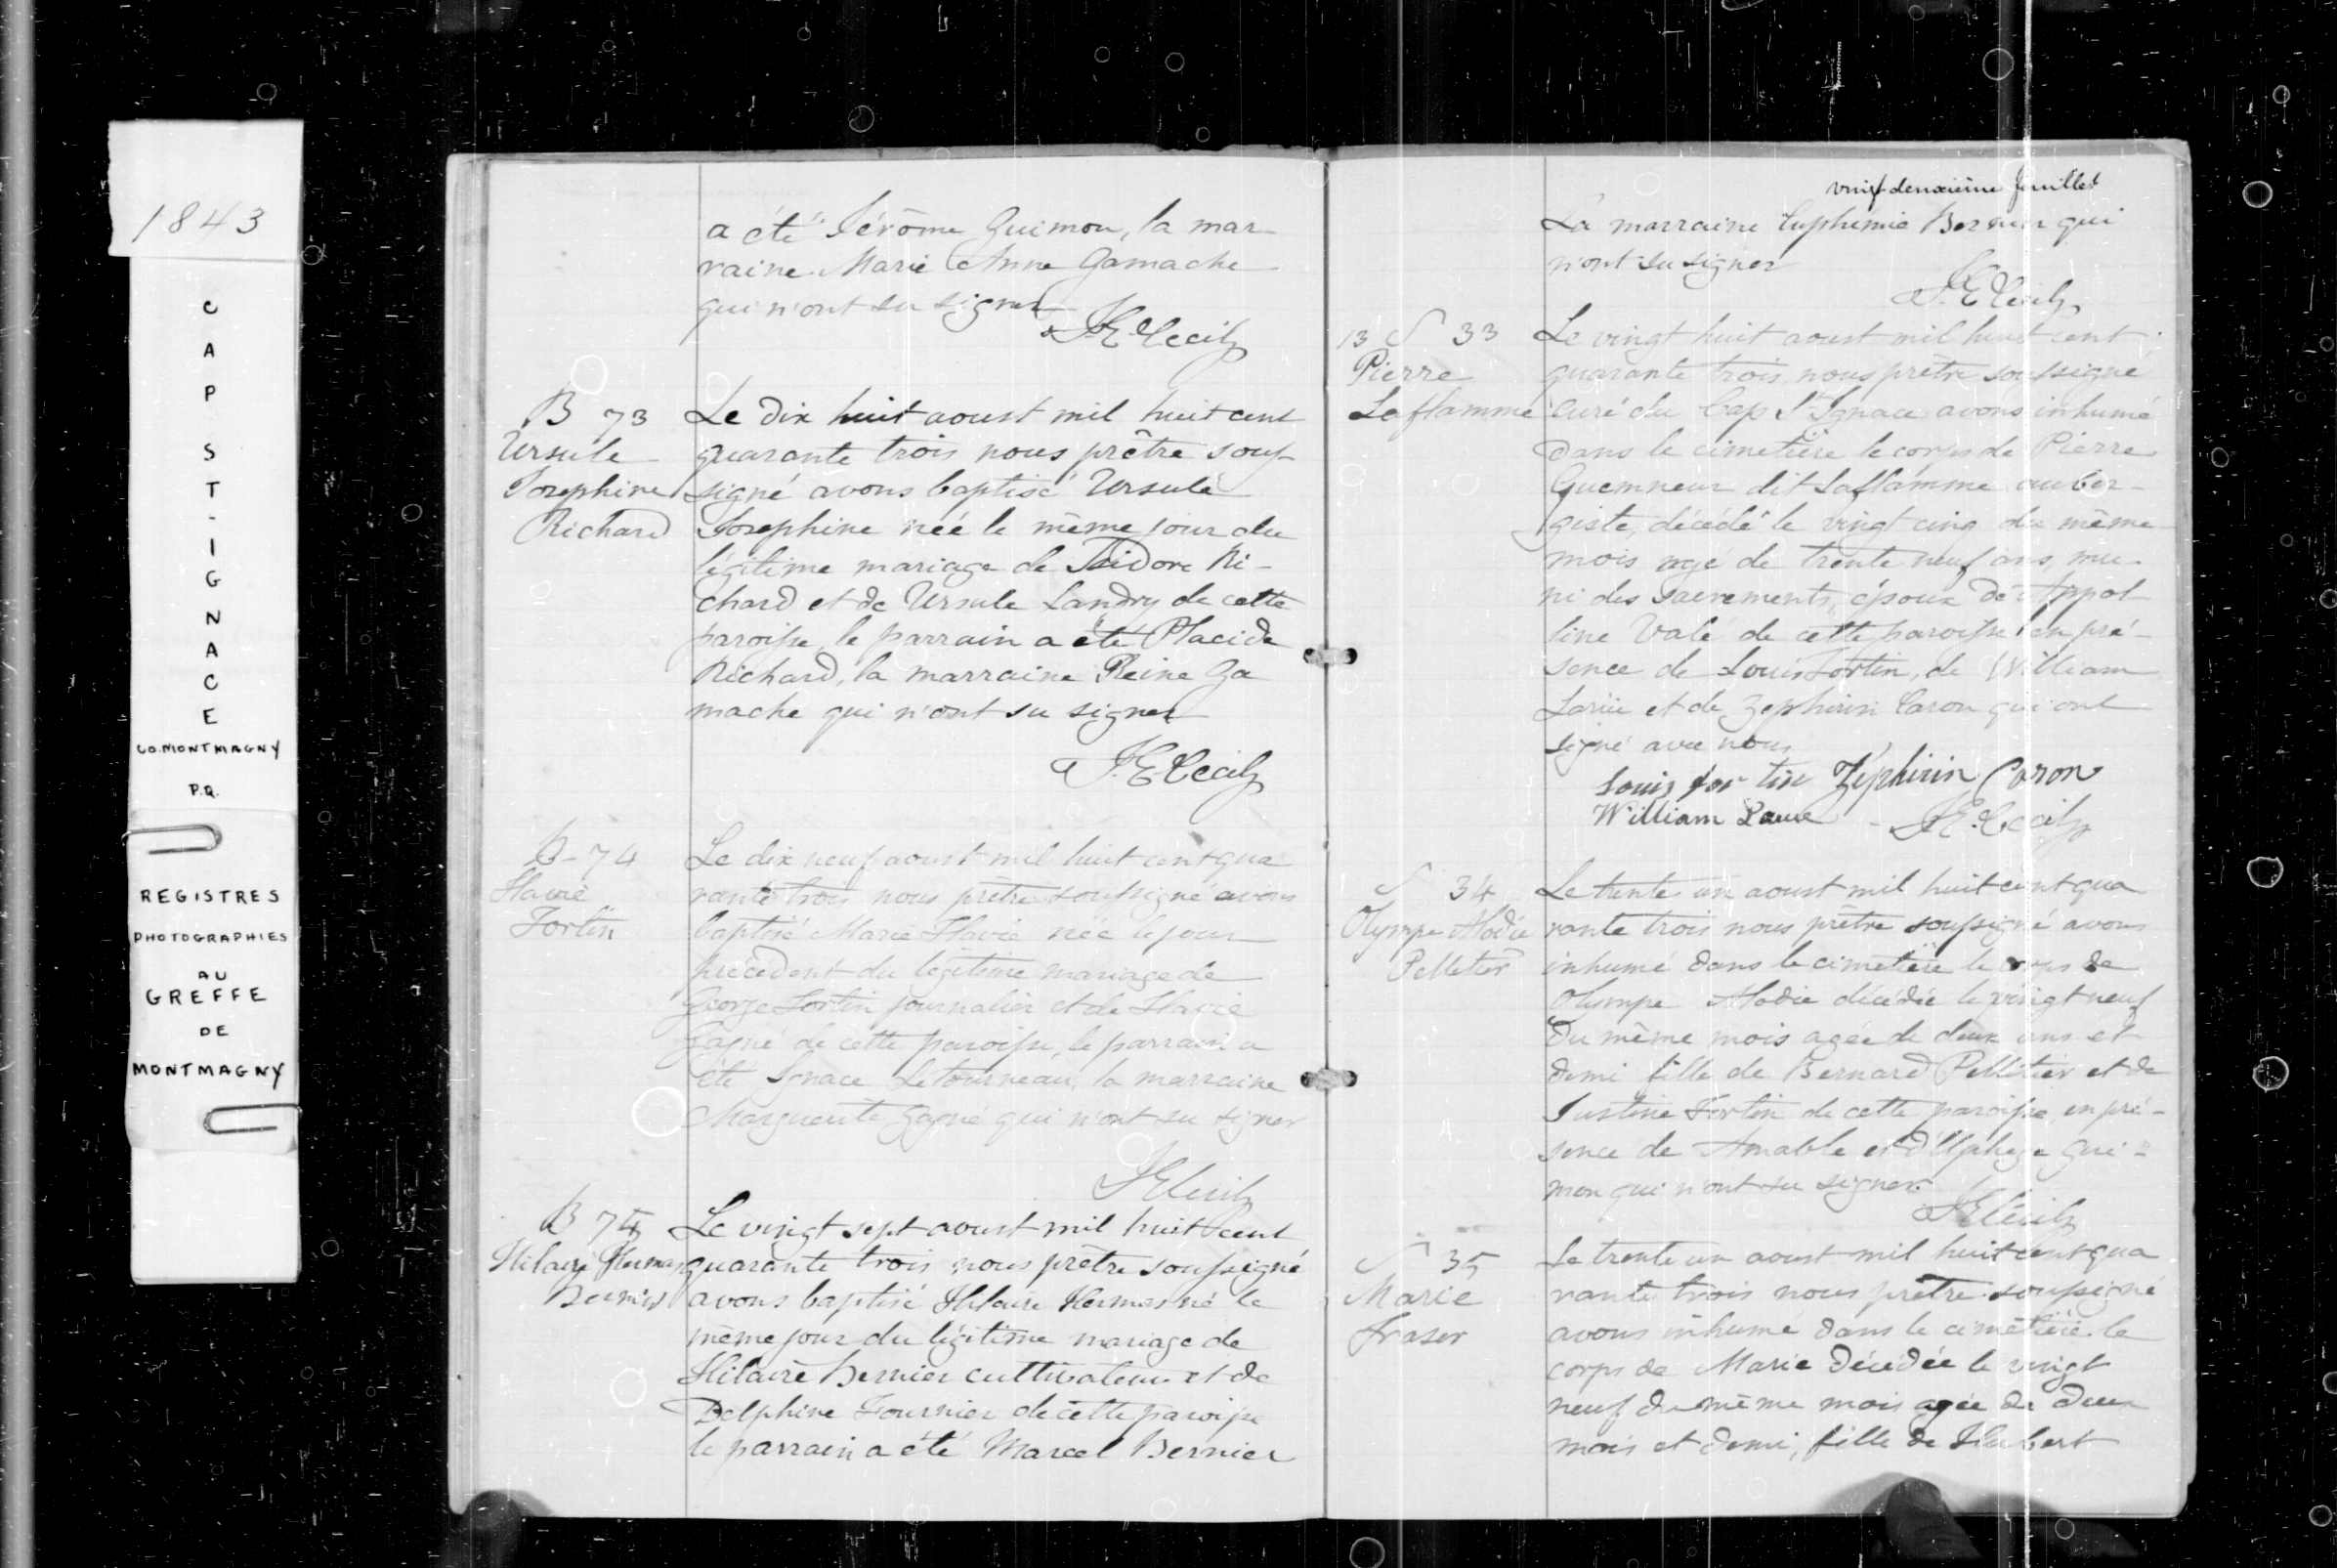 1843
CAP ST-IGNACE
CO. MONTMAGNY
P.Q.
REGISTRES
PHOTOGRAPHIES
AU
GREFFE
DE
MONTMAGNY
a été Jérôme Guimon, la mar
raine Marie Anne Gamache
qui n'ont su signer
J.E. Cecil
B 73
Ursule
Josephine
Richard
Le dix huit aoust mil huit cent
quarante trois nous prêtre souf
signé avons baptisé Ursule
Josephine née le même jour du
légitime mariage de Isidore Ri-
chard et de Ursule Landry de cette
paroisse, le parrain a été Placide
Richard, la marraine Reine Ga
mache qui n'ont su signer
J.E. Cecil
B-74
Flavie
Fortin
Le dix neuf aoust mil huit cent qua
rante trois nous prêtre soussigné avons
baptisé Marie Flavie née le jour
précédent du légitime mariage de
George Fortin journalier et de Flavie
Gagné de cette paroisse, le parrain a
été Ignace Letourneau, la marraine
Marguerite Gagné qui n'ont su signer
J.E. Cecil
B 75
Hilaire Hermas
Bernier
Le vingt sept aoust mil huit cent
quarante trois nous prêtre soussigné
avons baptisé Hilaire Hermas né le
même jour du légitime mariage de
Hilaire Bernier cultivateur et de
Delphine Fournier de cette paroisse
le parrain a été Marcel Bernier
vingt deuxième feuillet
La marraine Euphemie Bernier qui
n'ont su signer
J.E. Cecil
13 S 33
Pierre
Laflamme
Le vingt huit aoust mil huit cent
quarante trois nous prêtre soussigné
curé du Cap St Ignace avons inhumé
dans le cimetière le corps de Pierre
Quemneur dit Laflamme auber-
giste, décédé le vingt cinq du même
mois agé de trente neuf ans, mu-
ni des sacrements, époux de Appol
line Valé de cette paroisse en pré-
sence de Louis Fortin, de William
Larüe et de Zephirin Caron qui ont
signé avec nous
Louis for tin Zéphirin Caron
William Larue J.E. Cecil
S 34
Olympe Modie
Pelletier
Le trente un aoust mil huit cent qua
rante trois nous prêtre soussigné avons
inhumé dans le cimetière le corps de
Olympe Modie décédée le vingt neuf
du même mois agée de deux ans et
demi fille de Bernard Pelletier et de
Justine Fortin de cette paroisse, en pré-
sence de Amable et d' Gui-
mon qui n'ont su signer
J.E. Cecil
S 35
Marie
fraser
Le trente un aoust mil huit cent qua
rante trois nous prêtre soussigné
avons inhumé dans le cimetière le
corps de Marie décédée le vingt
neuf du même mois agée de deux
mois et demi, fille de Hubert